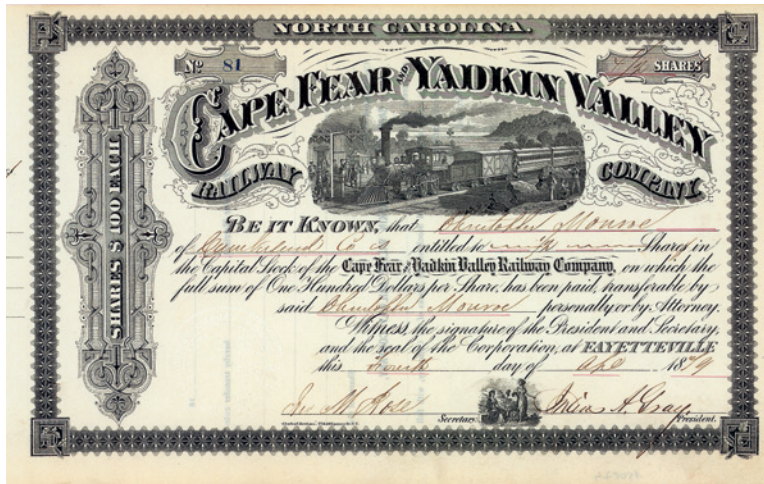 NORTH CAROLINA.
Nº 81
SHARES
CAPE FEAR AND YADKIN VALLEY
RAILWAY COMPANY.
SHARES $100 EACH
BE IT KNOWN, that Christopher Monroe
of Cumberland Co is entitled to Shares in
the Capital Stock of the Cape Fear & Yadkin Valley Railway Company, on which the
full sum of One Hundred Dollars per Share, has been paid, transferable by
said Christopher Monroe personally or by Attorney.
Witness, the signature of the President and Secretary,
and the seal of the Corporation, at FAYETTEVILLE
this Fourth day of Apl 1879
Jno M Rose Secretary. Julius A. Gray President.